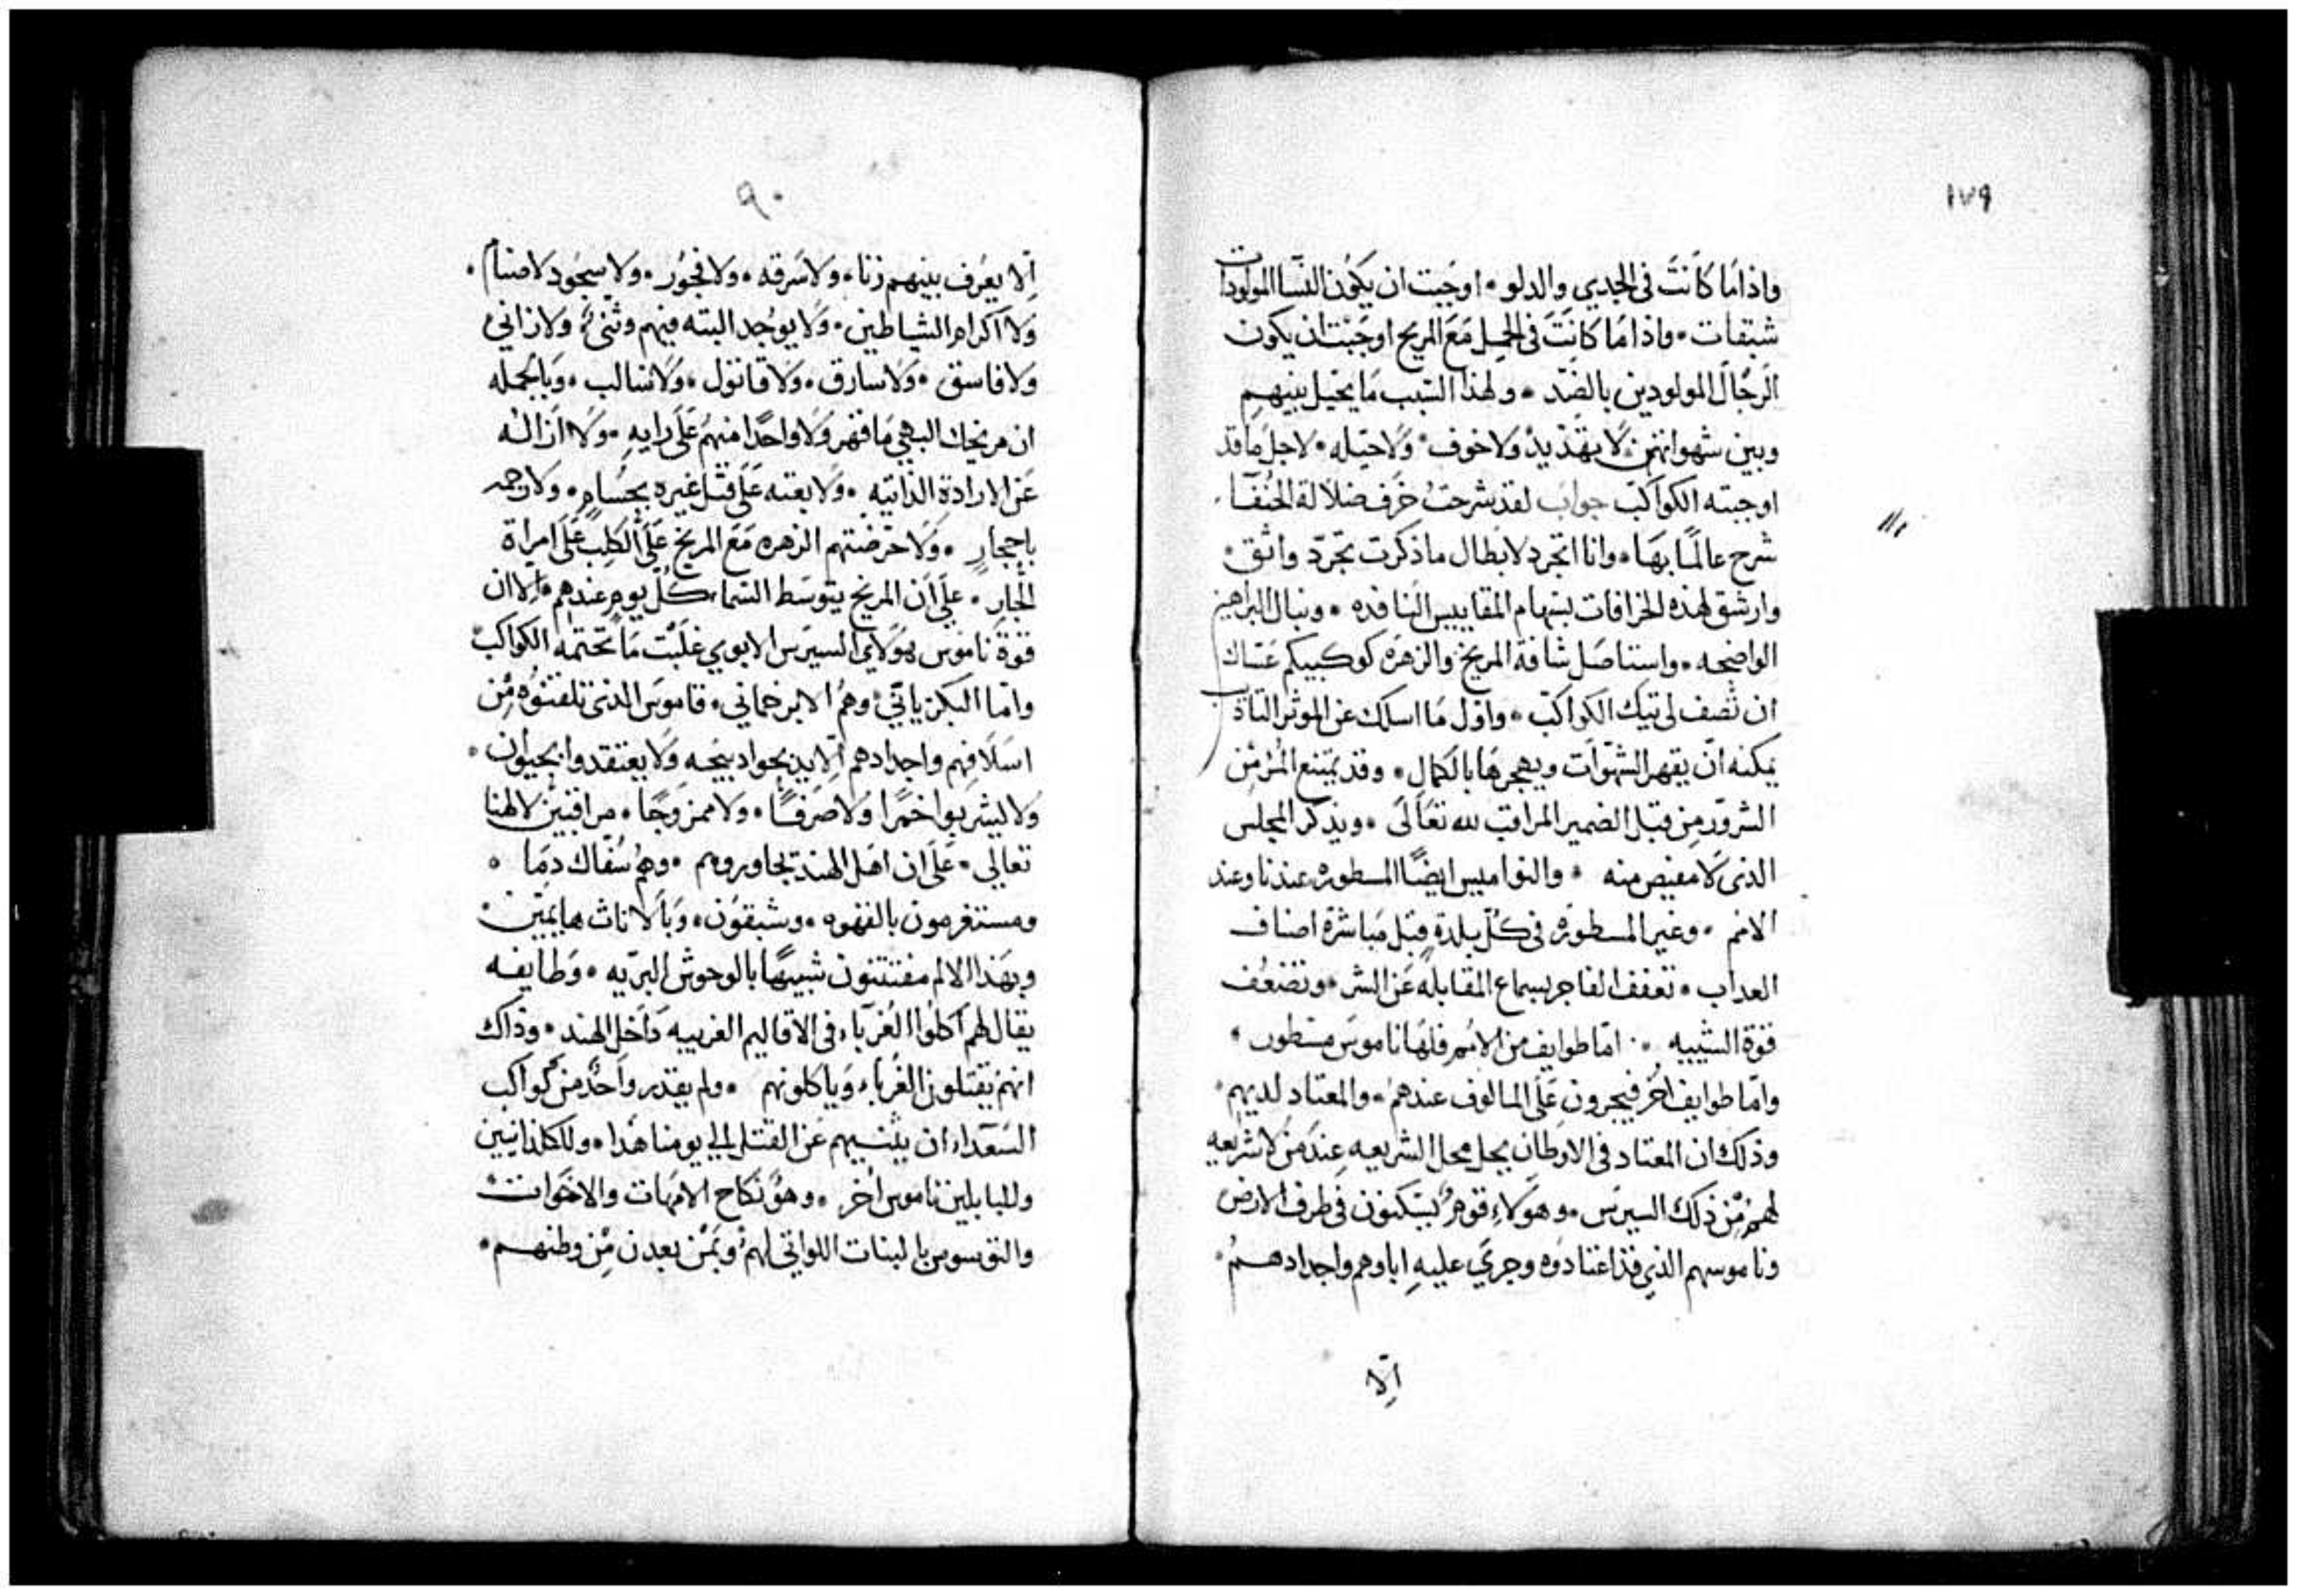 ١٧٩
واذا ما كانت فى الجدي والدلو • اوجبت ان يكون النسا المولودات
شبقات • واذا ما كانت فى الحمل مع المريخ اوجبت ان يكون
الرجال المولودين بالضد • ولهذا السبب ما يحيل بينهم
وبين شهواتهن لا تهديد ولا خوف • ولا حيله • لاجل ما قد
اوجبته الكواكب جواب لقد شرحت خرف ضلالة الحنفا
شرح عالما بها • وانا اتجرد لابطال ما ذكرت تجرد واثق •
وارشق لهذه الخرافات بسهام المقاييس النافده • ونبال البراهين
الواضحه • واستاصل شافة المريخ والزهره كوكبيكم عساك
ان تصف لى تيك الكواكب • واول ما اسلك عن الموثر التاة
يمكنه ان يقهر الشهوات ويهجرها بالكمال • وقد يمتنع المرء من
الشرور من قبل الضمير المراقب لله تعالى • ويذكر المجلس
الذى لا مفيص منه • والنواميس ايضا المسطوره عندنا وعند
الامم • وغير المسطوره فى كل بلدة قبل مباشرة اصناف
العداب • تعفف الفاجر بسماع المقابله عن الشر • وتضعف
قوة الشبيبه • اما طوايف من الامم فلها ناموس مسطور •
واما طوايف اخر فيجرون على المالوف عندهم • والمعتاد لديهم •
وذلك ان المعتاد فى الاوطان يحل محل الشريعه عند من لا شريعه
لهم من ذلك السيرس • وهولاء قوم يسكنون فى طرف الارض
وناموسهم الذي قد اعتادوه وجري عليه اباوهم واجدادهم •
الا
٩٠
الا يعرف بينهم زنا • ولا سرقه • ولا فجور • ولا سجود لاصنام •
ولا اكرام الشياطين • ولا يوجد البته فيهم وثنى • ولا زاني
ولا فاسق • ولا سارق • ولا قاتول • ولا سالب • وبالجمله
ان مريخك البهي ما قهر ولا واحدا منهم على رايه • ولا ازاله
عن الارادة الذاتيه • ولا بعته على قتل غيره بحسام • ولا رجمه
باحجار • ولا حرضتهم الزهره مع المريخ على الكلب على امراة
الجار • على ان المريخ يتوسط السماء كل يوم عندهم • الا ان
قوة ناموس هولاي السيرس الابوي غلبت ما تحتمه الكواكب
واما البكريايي • وهم الابرخماني • قاموس الذى تلقنوه من
اسلافهم واجدادهم الا يدبحوا دبيحه ولا يعتقدوا بحيوان •
ولا يشربوا خمرا ولا صرفا • ولا ممزوجا • مراقبين لالهنا
تعالى • على ان اهل الهند تجاورهم • وهم سفاك دما •
ومستغرمون بالقهوه • وشبقون • وبالاناث هايمين •
وبهذا الالم مفتتنون شبيها بالوحوش البريه • وطايفه
يقال لهم اكلوا الغرباء فى الاقاليم الغربيه داخل الهند • وذاك
انهم يقتلون الغرباء وياكلونهم • ولم يقدر واحد من كواكب
السعداء ان يثنيهم عن القتل الي يومنا هدا • وللكلدانيين
وللبابلين ناموس اخر • وهو نكاح الامهات والاخوات
والنوسوس بالبنات اللواتي لهم • وبمن بعدن من وطنهم •